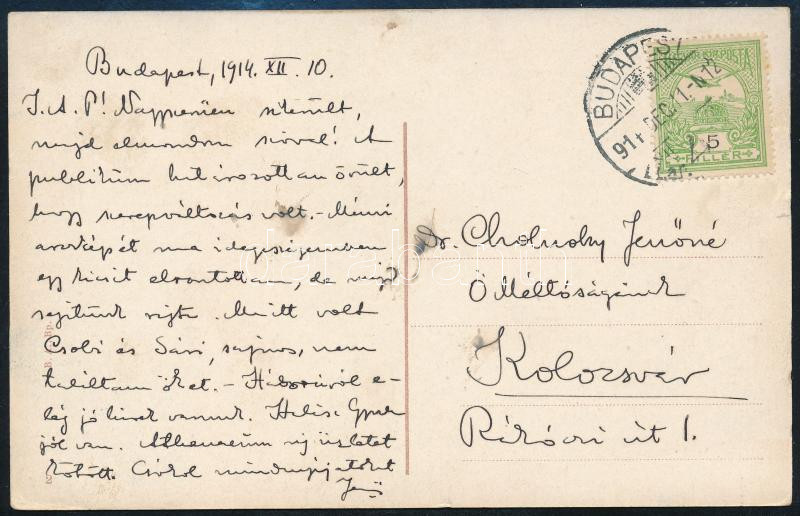 Budapest, 1914. XII. 10.
I. A. P! Nagyszerűen sikerült,
majd elmondom szóval! A
publikum határozottan örült,
hogy szerepváltozás volt. - Mami
arcképét ma idegességemben
egy kicsit elrontottam, de majd
segítünk rajta. Mi itt volt
Csobi és Sári, sajnos, nem
találtam őket. - Háborúról e-
lég jó hírek vannak. Gyula
jól van. Athenaeum új üzletet
kötött. Csókol mindnyájatokat
Jenő
BUDAPEST
914 DEC. 11. - N. 12
MAGYAR KIR. POSTA
5
FILLÉR
Dr. Cholnoky Jenőné
Ő Méltóságának
Kolozsvár
Rákóczi út 1.
darabanth